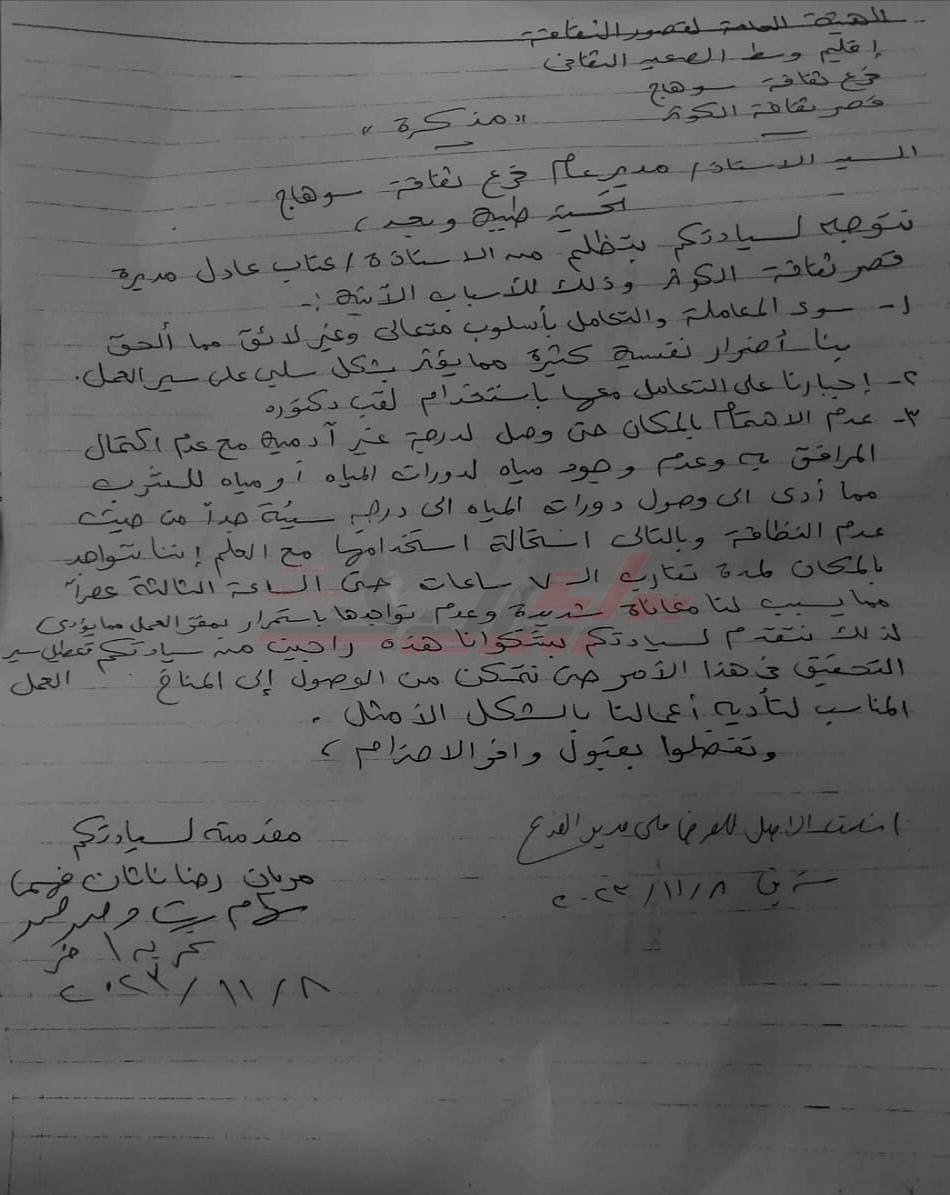 الهيئة العامة لقصور الثقافة
إقليم وسط الصعيد الثقافى
فرع ثقافة سوهاج
قصر ثقافة الكوثر
"مذكرة"
السيد الاستاذ/ مدير عام فرع ثقافة سوهاج
تحية طيبة وبعد،
نتوجه لسيادتكم بتظلم من الاستاذة/ عتاب عادل مديرة
قصر ثقافة الكوثر وذلك للأسباب الآتية :-
١- سوء المعاملة والتعامل بأسلوب متعالى وغير لائق مما ألحق
بنا أضرار نفسية كثيرة مما يؤثر بشكل سلبي على سير العمل.
٢- إجبارنا على التعامل معها باستخدام لقب دكتوره
٣- عدم الاهتمام بالمكان حتى وصل لدرجة غير آدمية مع عدم اكتمال
المرافق به وعدم وجود مياه لدورات المياه أو مياه للشرب
مما أدى الى وصول دورات المياه الى درجة سيئة جداً من حيث
عدم النظافة وبالتالى استحالة استخدامها مع العلم إننا نتواجد
بالمكان لمدة تقارب الـ ٧ ساعات حتى الساعة الثالثة عصراً
مما يسبب لنا معاناة شديدة وعدم تواجدها باستمرار بمقر العمل مما يؤدى
لذلك نتقدم لسيادتكم بشكوانا هذه راجين من سيادتكم تعطيل سير
التحقيق فى هذا الأمر حتى نتمكن من الوصول إلى المناخ العمل
المناسب لتأدية أعمالنا بالشكل الأمثل .
وتفضلوا بقبول وافر الاحترام ،
مقدمته لسيادتكم
استلمت الاصل للعرض على مدير الفرع
مريان رضا ناثان فهيم
٢٠٢٣/١١/٨
٢٠٢٣/١١/٨